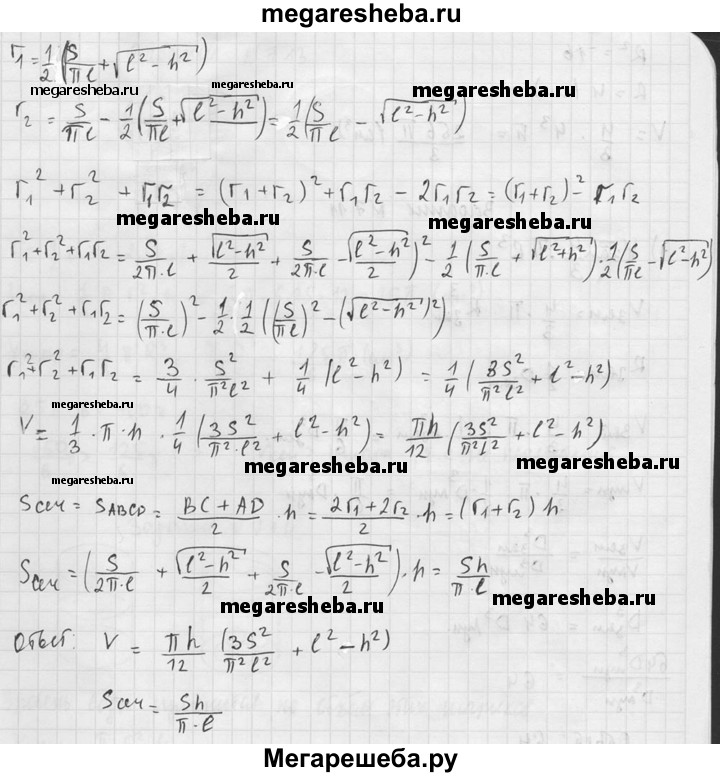 megaresheba.ru
r₁ = 1/2 (S/πl + √(l² − h²))
megaresheba.ru megaresheba.ru
r₂ = S/πl − 1/2 (S/πl + √(l² − h²)) = 1/2 (S/πl − √(l² − h²))
r₁² + r₂² + r₁r₂ = (r₁ + r₂)² + r₁r₂ − 2r₁r₂ = (r₁ + r₂)² − r₁r₂
megaresheba.ru megaresheba.ru
r₁² + r₂² + r₁r₂ = S/2π·l + √(l² − h²)/2 + S/2π·l − √(l² − h²)/2)² − 1/2 (S/π·l + √(l² + h²)) · 1/2 (S/πl − √(l² − h²))
megaresheba.ru megaresheba.ru
r₁² + r₂² + r₁r₂ = (S/π·l)² − 1/2 · 1/2 ((S/πl)² − (√(l² − h²))²)
r₁² + r₂² + r₁r₂ = 3/4 · S²/π²l² + 1/4 (l² − h²) = 1/4 (3S²/π²l² + l² − h²)
megaresheba.ru megaresheba.ru
V = 1/3 · π · h · 1/4 (3S²/π²·l² + l² − h²) = πh/12 (3S²/π²l² + l² − h²)
megaresheba.ru megaresheba.ru
Sсеч = SABCD = BC + AD/2 · h = 2r₁ + 2r₂/2 · h = (r₁ + r₂) h
Sсеч = (S/2π·l + √(l² − h²)/2 + S/2π·l − √(l² − h²)/2) · h = Sh/π·l
megaresheba.ru megaresheba.ru
Ответ: V = πh/12 (3S²/π²l² + l² − h²)
megaresheba.ru
Sсеч = Sh/π·l
Мегарешеба.ру